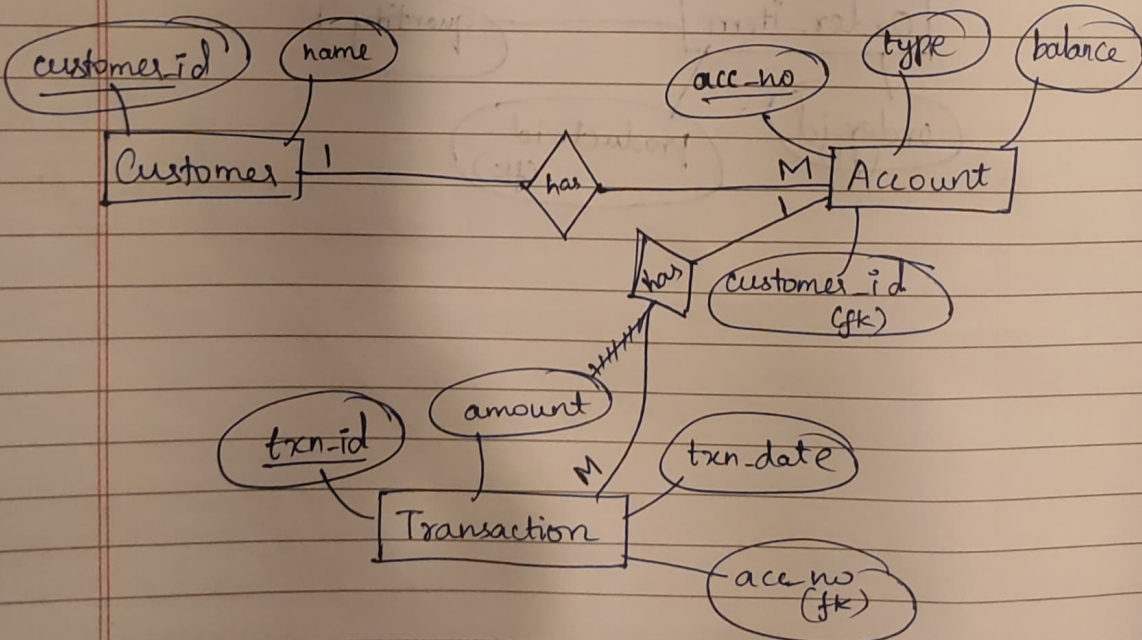 customer_id
name
acc_no
type
balance
Customer
1
has
M
Account
1
has
customer_id
(fk)
amount
txn_id
M
txn_date
Transaction
acc_no
(fk)